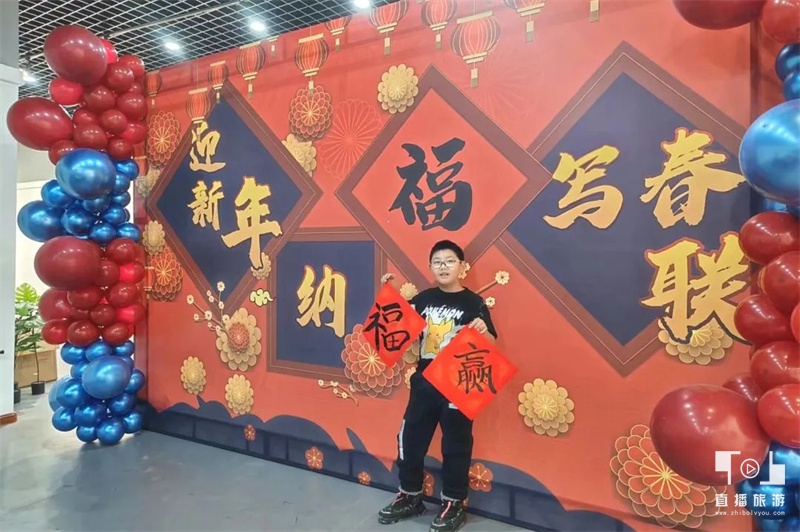 迎新年
纳福
写春联
福
赢
POKÉMON
直播旅游
www.zhibolvyou.com